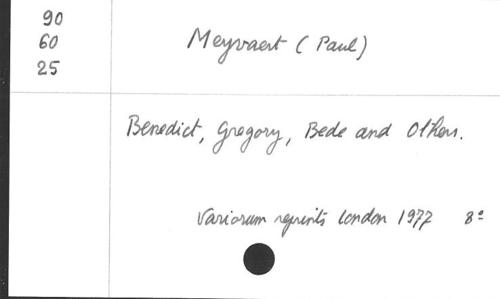 90
60
25
Meyvaert (Paul)
Benedict, Gregory, Bede and Others.
Variorum reprints London 1977 8º